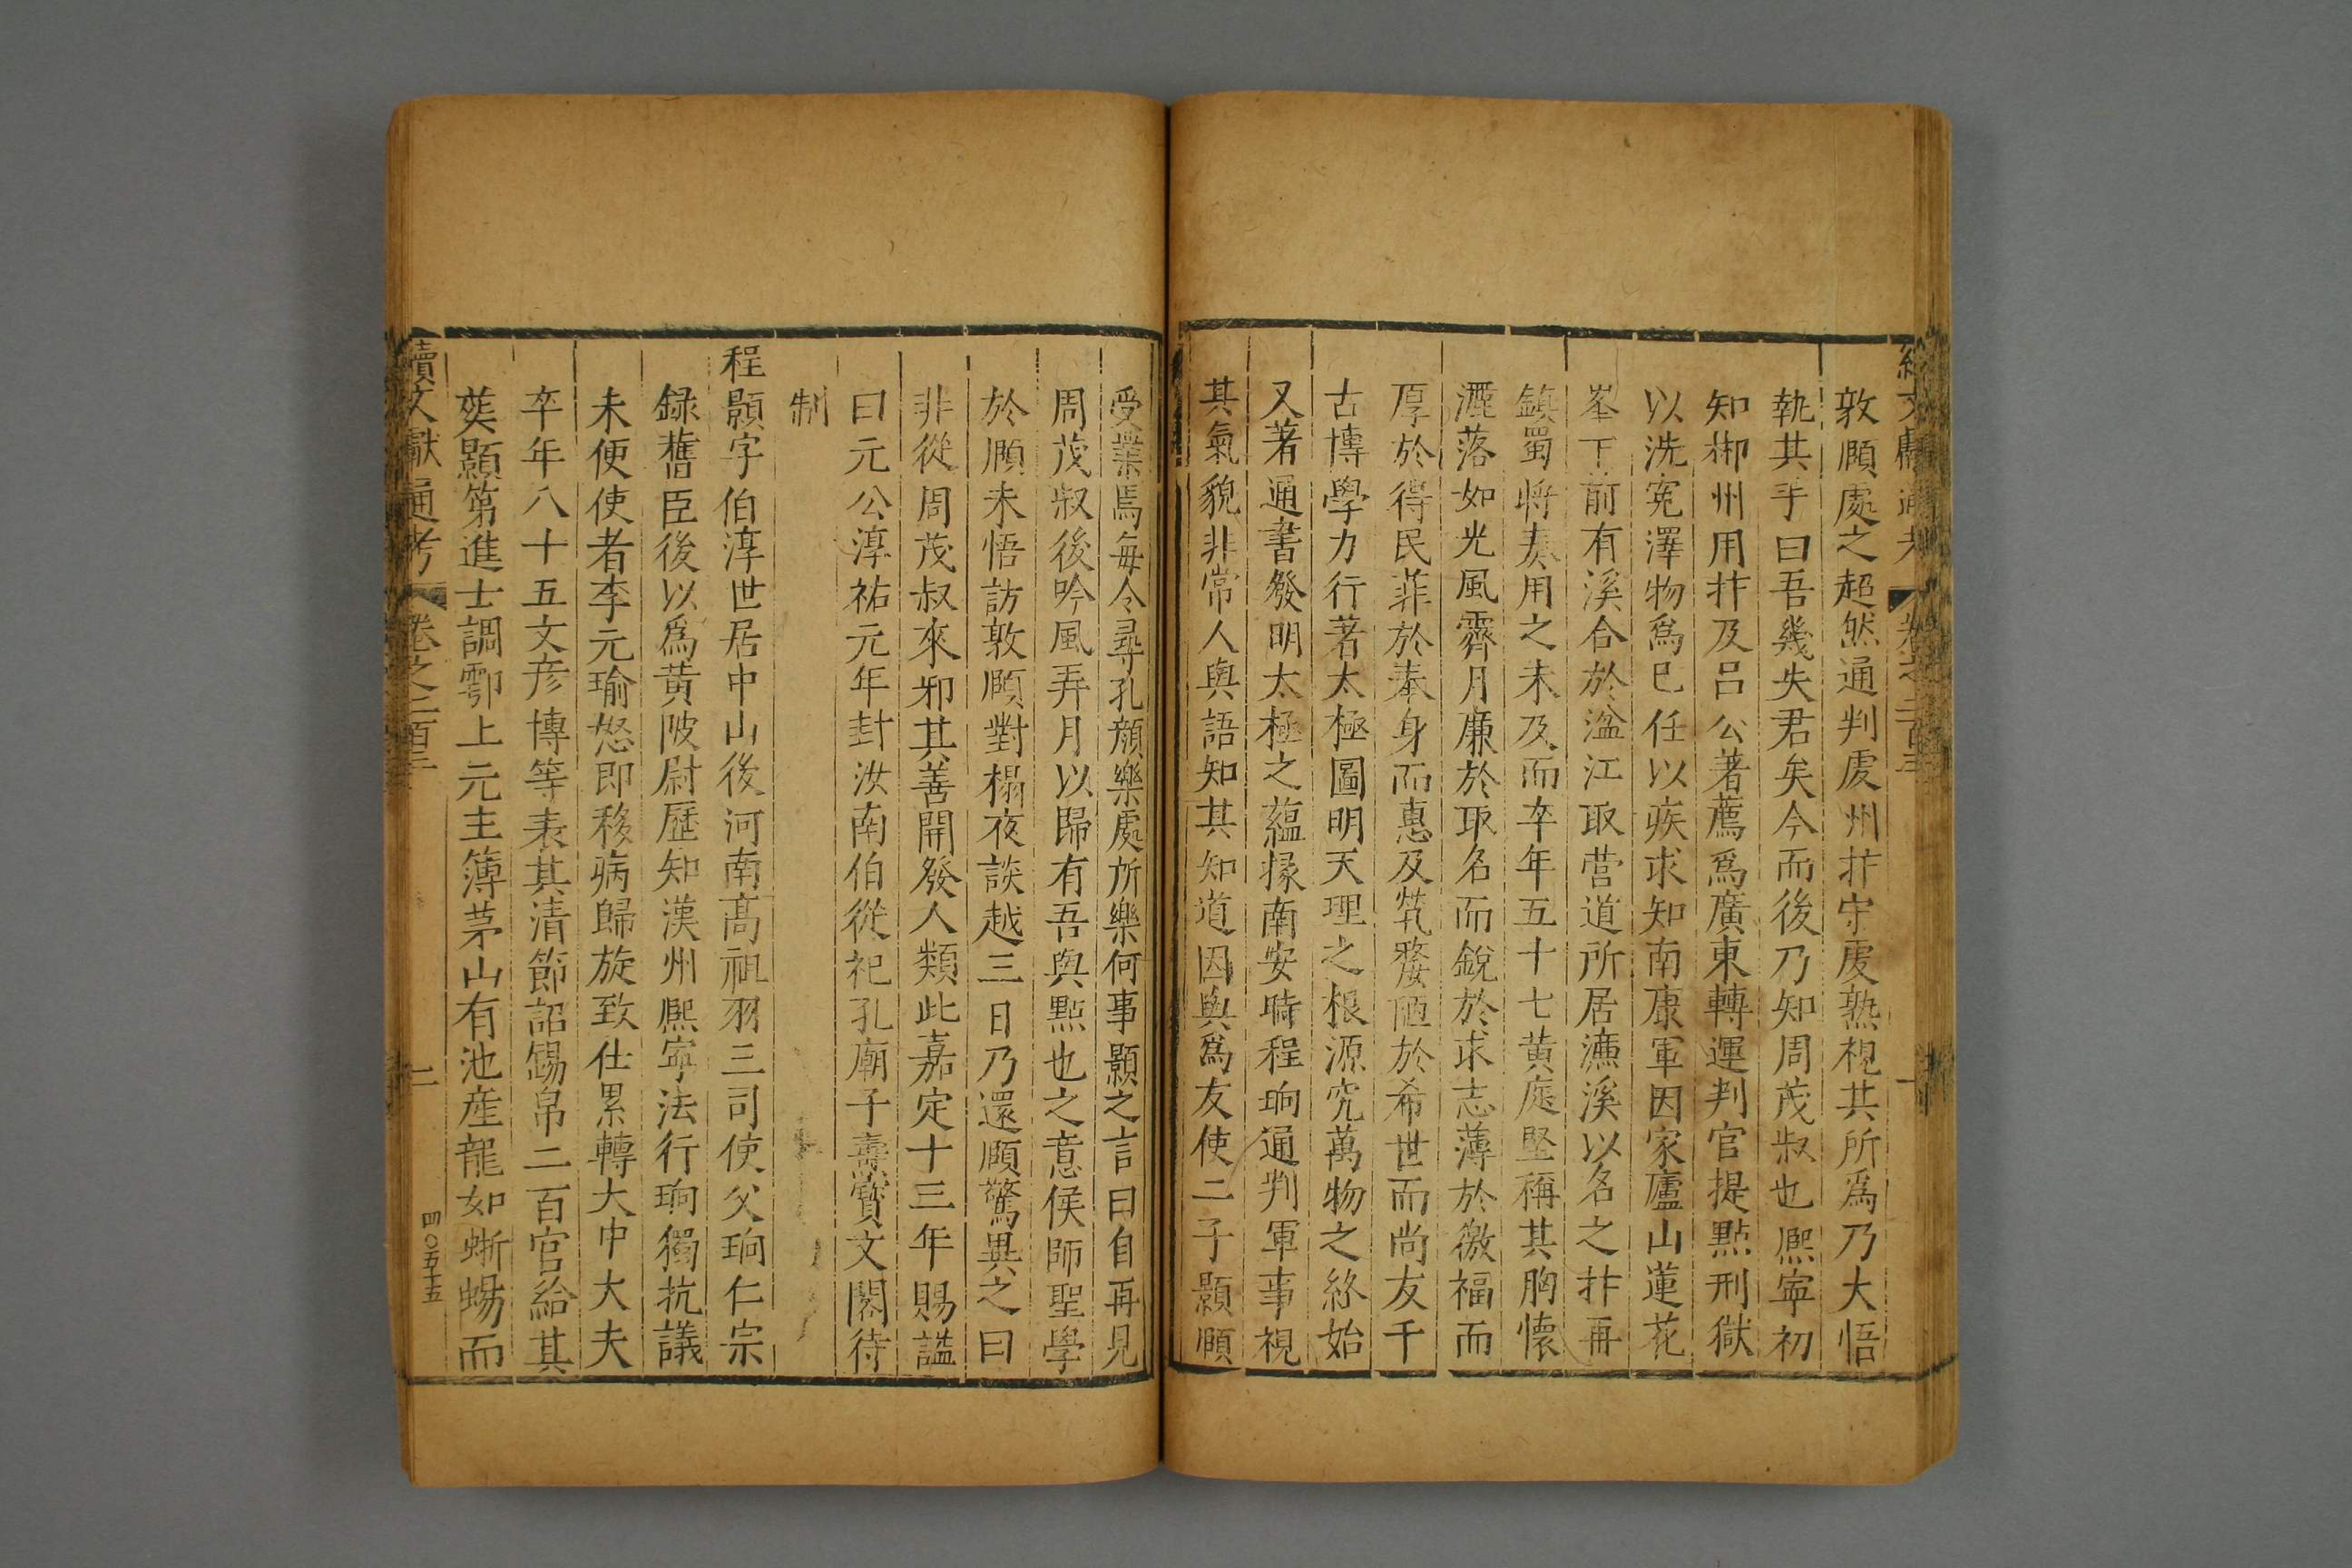 敦頤處之超然通判䖍州抃守䖍熟視其所爲乃大悟
執其手曰吾幾失君矣今而後乃知周茂叔也熈寧初
知郴州用抃及吕公著薦爲廣東轉運判官提㸃刑獄
以洗寃澤物爲已任以疾求知南康軍因家廬山蓮花
峯下前有溪合於湓江取营道所居濂溪以名之抃再
鎮蜀將奏用之未及而卒年五十七黄庭堅稱其胸懷
灑落如光風霽月廉於取名而銳於求志薄於徼福而
厚於得民菲於奉身而惠及煢嫠陋於希世而尚友千
古博學力行著太極圖明天理之根源究萬物之終始
又著通書發明太極之蘊掾南安時程珦通判軍事視
其氣貌非常人與語知其知道因與爲友使二子顥頤
受業焉每令尋孔顏樂處所樂何事顥之言曰自再見
周茂叔後吟風弄月以歸有吾與㸃也之意侯師聖學
於頤未悟訪敦頤對榻夜談越三日乃還頤驚異之曰
非從周茂叔來邪其善開發人類此嘉定十三年賜謚
曰元公淳祐元年封汝南伯從祀孔廟子壽寳文閣待
制
程顥字伯淳世居中山後河南髙祖羽三司使父珦仁宗
録舊臣後以爲黄陂尉歷知漢州熈寧法行珦獨抗議
未便使者李元瑜怒即移病歸旋致仕累轉大中大夫
卒年八十五文彦博等表其清節詔錫帛二百官給其
𦵏顥第進士調鄠上元主簿茅山有池産龍如蜥蜴而
續文獻通考 卷之二百三 二
四〇五十五